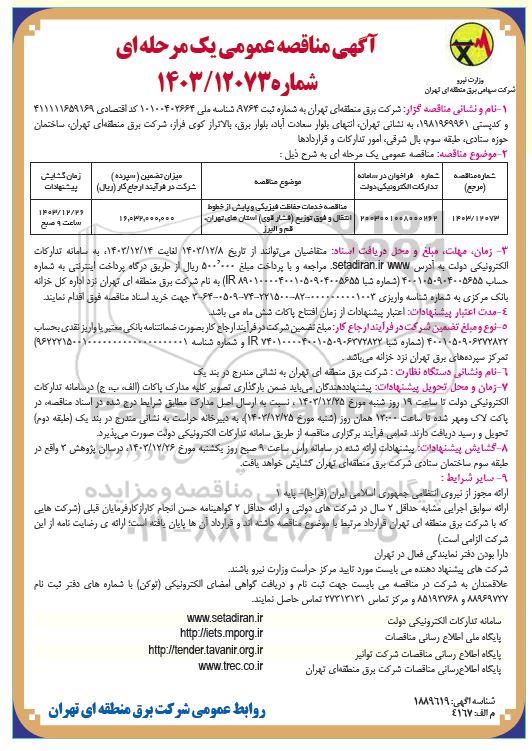 آگهی مناقصه عمومی یک مرحله ای
شماره ۱۴۰۳/۱۲۰۷۳
وزارت نیرو
شرکت سهامی برق منطقه ای تهران
۱-نام و نشانی مناقصه گزار: شرکت برق منطقه‌ای تهران به شماره ثبت ۹۷۶۴، شناسه ملی ۱۰۱۰۰۴۰۲۶۶۴ کد اقتصادی ۴۱۱۱۱۱۶۵۹۱۶۹
و کدپستی ۱۹۸۱۹۶۹۹۶۱، به نشانی تهران، انتهای بلوار سعادت آباد، بلوار برق، بالاتر از کوی فراز، شرکت برق منطقه‌ای تهران، ساختمان
حوزه ستادی، طبقه سوم، بال شرقی، امور تدارکات و قراردادها
۲-موضوع مناقصه: مناقصه عمومی یک مرحله ای به شرح ذیل :
شماره مناقصه (مرجع)
شماره فراخوان در سامانه تدارکات الکترونیکی دولت
موضوع مناقصه
میزان تضمین ( سپرده ) شرکت در فرآیند ارجاع کار (ریال)
زمان گشایش پیشنهادات
۱۴۰۳/۱۲۰۷۳
۲۰۰۳۰۰۱۰۰۸۰۰۰۲۶۲
مناقصه خدمات حفاظت فیزیکی و پایش از خطوط انتقال و فوق توزیع (فشار قوی) استان های تهران، قم و البرز
۱۶,۰۳۲,۰۰۰,۰۰۰
۱۴۰۳/۱۲/۲۶ ساعت ۹ صبح
۳- زمان، مهلت، مبلغ و محل دریافت اسناد: متقاضیان می‌توانند از تاریخ ۱۴۰۳/۱۲/۸ لغایت ۱۴۰۳/۱۲/۱۴، به سامانه تدارکات
الکترونیکی دولت به آدرس www.setadiran.ir مراجعه و با پرداخت مبلغ ۵۰۰٬۰۰۰ ریال از طریق درگاه پرداخت اینترنتی به شماره
حساب ۴۰۰۱۰۵۰۹۰۴۰۰۵۶۵۵ (شماره شبا IR ۸۹۰۱۰۰۰۰۴۰۰۱۰۵۰۹۰۴۰۰۵۶۵۵) به نام شرکت برق منطقه ای تهران نزد اداره کل خزانه
بانک مرکزی به شماره شناسه واریزی جهت خرید اسناد مناقصه فوق اقدام نمایند.
۴-مدت اعتبار پیشنهادات: اعتبار پیشنهادات از زمان افتتاح پاکات شش ماه می باشد.
۵-نوع و مبلغ تضمین شرکت در فرآیند ارجاع کار: مبلغ تضمین شرکت در فرآیند ارجاع کار بصورت ضمانتنامه بانکی معتبر یا واریز نقدی بحساب
۴۰۰۱۰۵۰۹۰۶۳۷۲۸۲۲ (شماره شبا IR ۷۴۰۱۰۰۰۰۴۰۰۱۰۵۰۹۰۶۳۷۲۸۲۲ و شماره شناسه
تمرکز سپرده‌های برق تهران نزد خزانه می‌باشد .
۶-نام ونشانی دستگاه نظارت : شرکت برق منطقه ای تهران به نشانی مندرج در بند یک
۷-زمان و محل تحویل پیشنهادات: پیشنهاددهندگان می‌باید ضمن بارگذاری تصویر کلیه مدارک پاکات (الف، ب، ج) درسامانه تدارکات
الکترونیکی دولت تا ساعت ۱۹ روز شنبه مورخ ۱۴۰۳/۱۲/۲۵ ، نسبت به ارسال اصل مدارک مطابق شرایط درج شده در اسناد مناقصه، در
پاکت لاک ومهر شده تا ساعت ۱۳:۰۰ همان روز (شنبه مورخ ۱۴۰۳/۱۲/۲۵)، به دبیرخانه حراست به نشانی مندرج در بند یک (طبقه دوم)
تحویل و رسید دریافت دارند. تمامی فرآیند برگزاری مناقصه از طریق سامانه تدارکات الکترونیکی دولت صورت می‌پذیرد.
۸-گشایش پیشنهادات: پیشنهادات ارائه شده در سامانه راس ساعت ۹ صبح روز یکشنبه مورخ ۱۴۰۳/۱۲/۲۶، درسالن پژوهش ۳ واقع در
طبقه سوم ساختمان ستادی شرکت برق منطقه‌ای تهران گشایش خواهد یافت.
۹- سایر شرایط :
ارائه مجوز از نیروی انتظامی جمهوری اسلامی ایران (فراجا)- پایه ۱
ارائه سوابق اجرایی مشابه حداقل ۲ سال در شرکت های دولتی و ارائه حداقل ۲ گواهینامه حسن انجام کار از کارفرمایان قبلی (شرکت هایی
که با شرکت برق منطقه ای تهران قرارداد مرتبط با موضوع مناقصه داشته اند و قرارداد آن ها پایان یافته است؛ ارائه ی رضایت نامه از این
شرکت الزامی است.)
دارا بودن دفتر نمایندگی فعال در تهران
شرکت های پیشنهاد دهنده می بایست مورد تایید مرکز حراست وزارت نیرو باشند.
علاقمندان به شرکت در مناقصه می بایست جهت ثبت نام و دریافت گواهی امضای الکترونیکی (توکن) با شماره های دفتر ثبت نام
۸۸۹۶۹۷۳۷ و ۸۵۱۹۳۷۶۸ و مرکز تماس ۲۷۳۱۳۱۳۱ تماس حاصل نمایند.
سامانه تدارکات الکترونیکی دولت www.setadiran.ir
پایگاه ملی اطلاع رسانی مناقصات http://iets.mporg.ir
پایگاه اطلاع رسانی مناقصات شرکت توانیر http://tender.tavanir.org.ir
پایگاه اطلاع‌رسانی مناقصات شرکت برق منطقه‌ای تهران www.trec.co.ir
شناسه آگهی: ۱۸۸۹۶۱۹
م الف: ۴۱۶۷
روابط عمومی شرکت برق منطقه ای تهران